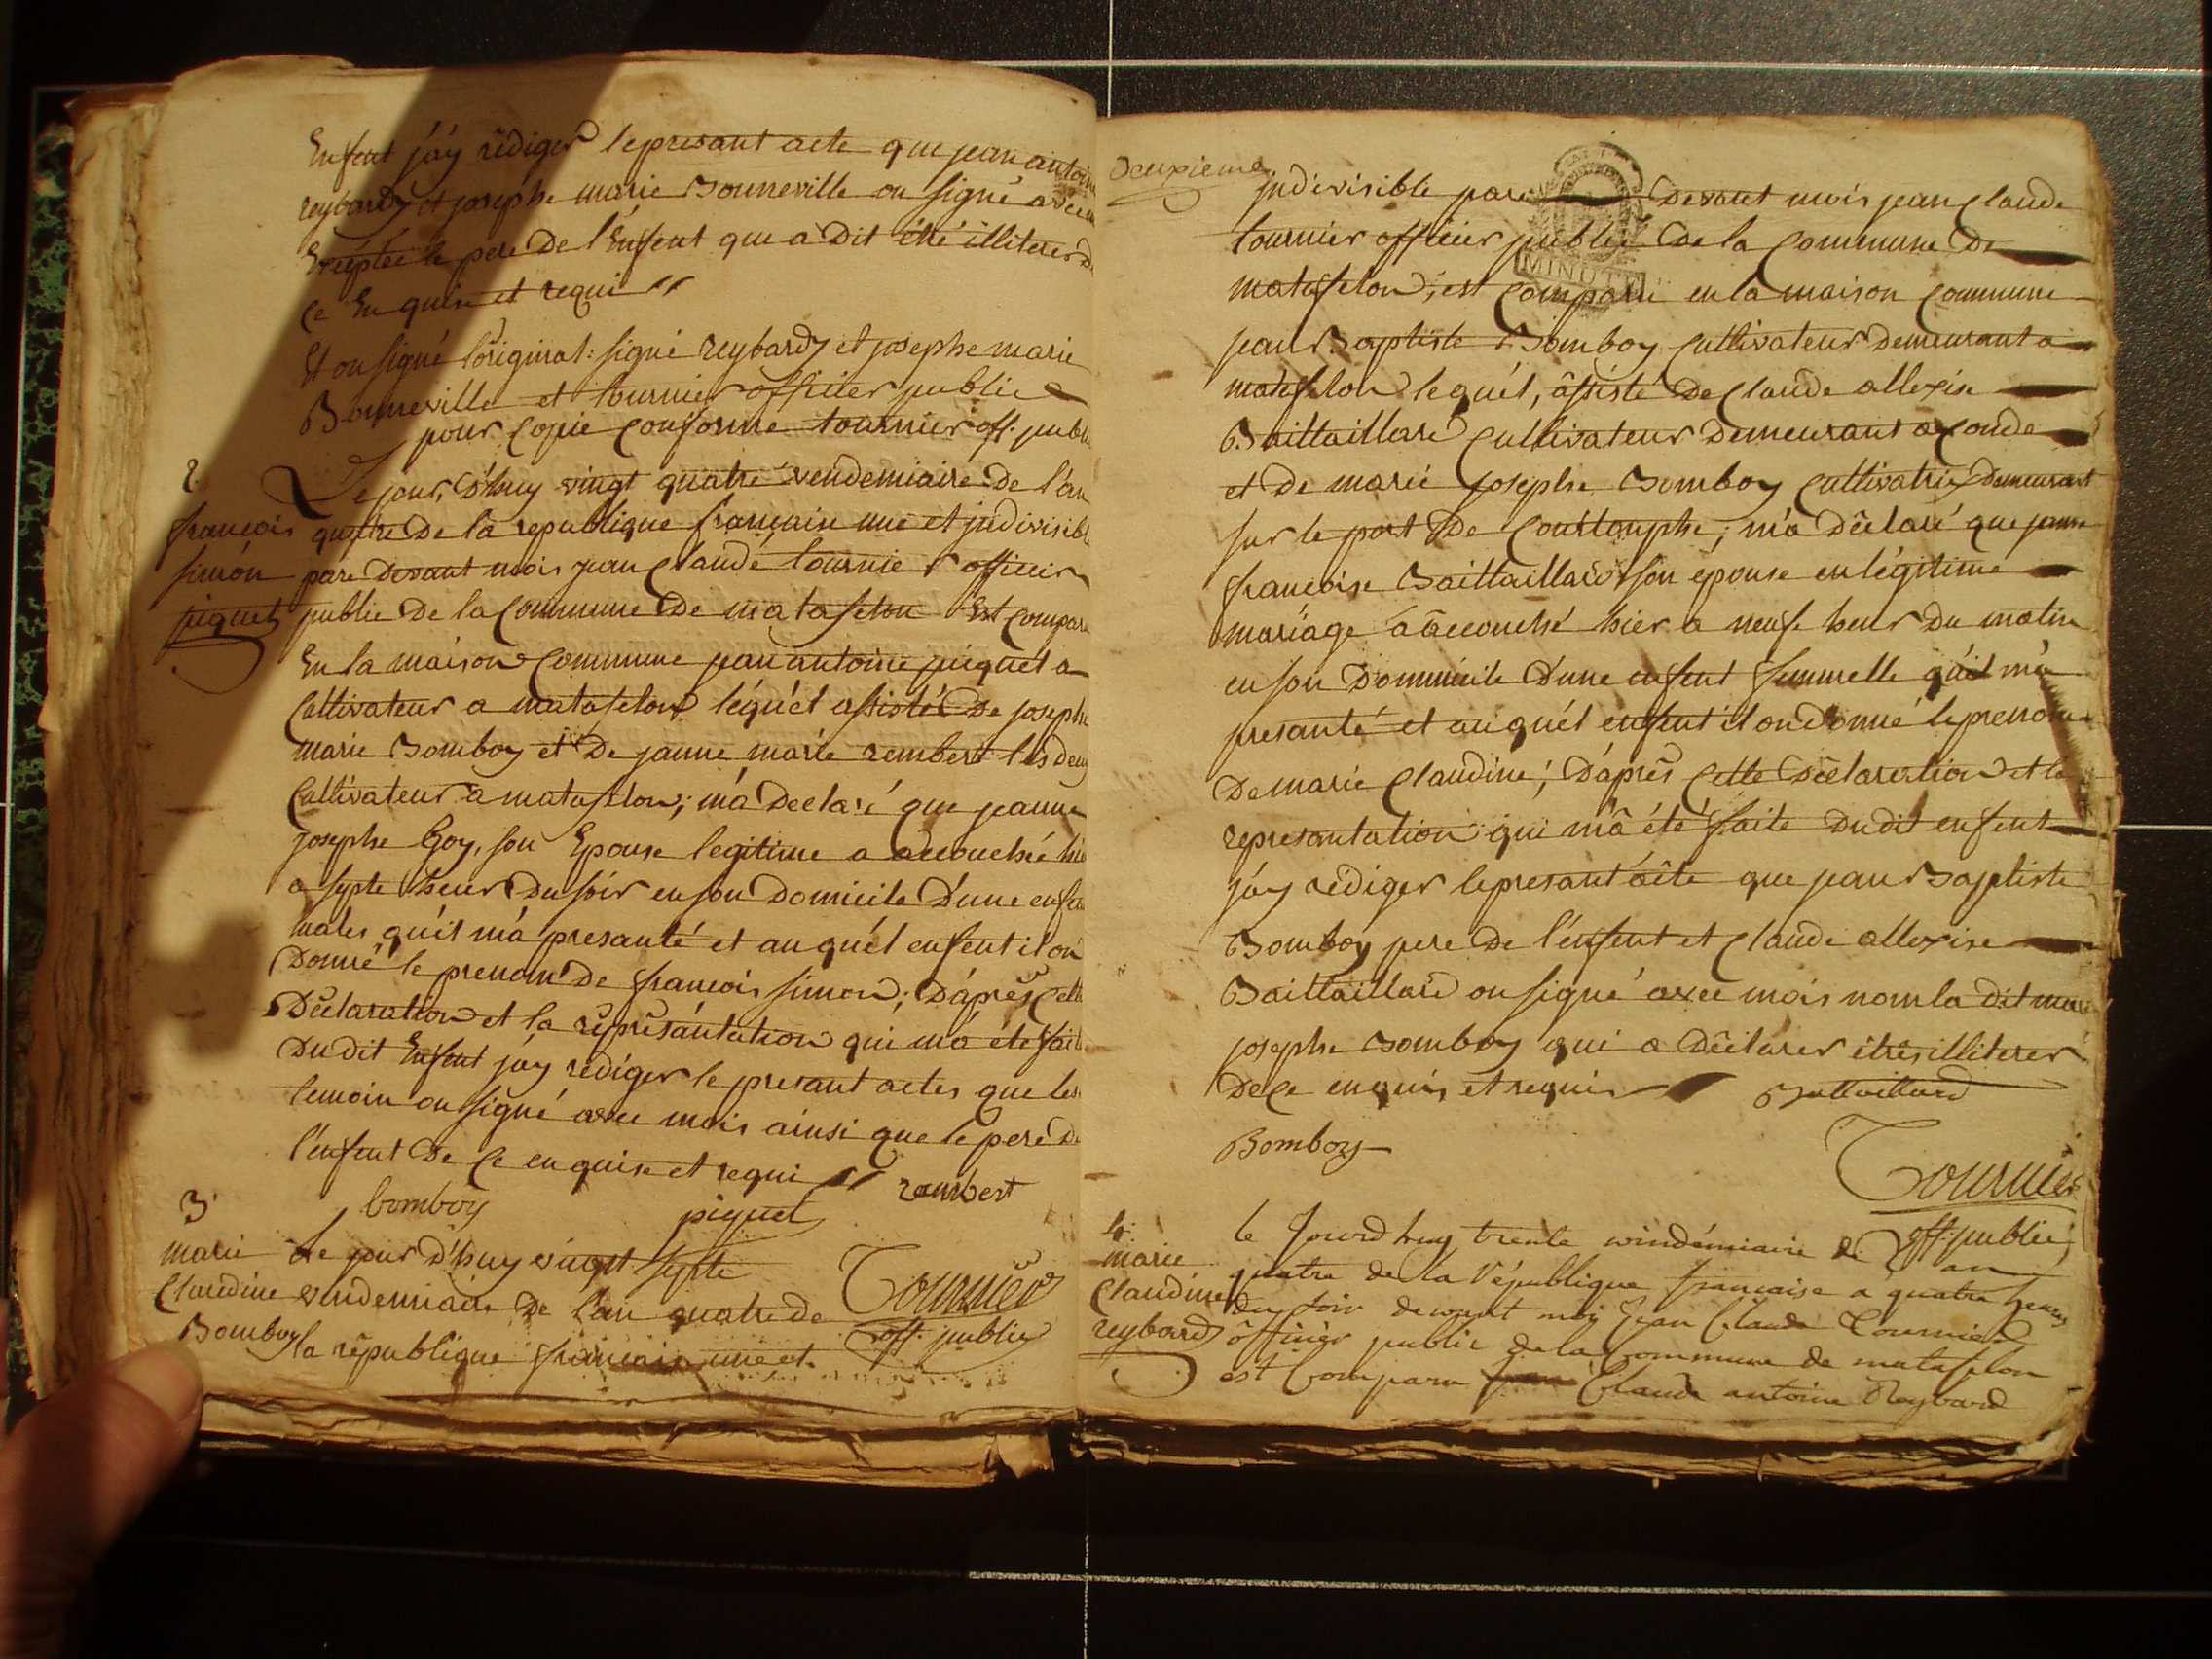 Enfent j'áy rédiger le presant acte que jean antoine
reybard et josephe marie Bonneville on signé avec
Exéptée le pere De l'Enfent que a Dit étré illiterer d
ce En quise et requi
Et on signé l'original: signé reybard et josephe marie
Bonneville et tournier officier public
pour Copie Conforme tournier off. public
2.
françois
simon
piquet
Le jour, d'huy vingt quatre vendemiaire De l'an
quatre De la republique française une et jndivisible
pare Devant mois jean Claude tournier officier
public De la Commune De matafelon Est Compare
En la maison Commune jean antoine piquet
Cultivateur a matafelon léquél assistée De josephe
marie Bomboy et De janne marie rembert les deux
Cultivateur a matafelon; m'a Declaré que jeanne
josephe Goy, son Epouse legitime a accouchée hier
a septe heur Du soir en son Domicile D'une enfen
males qu'il m'a presanté et au quél enfent il on
Donné le prenom de françois simon; D'áprés Cette
Déclaration et la représantation qui m'a été fait
Du dit Enfent j'áy rédiger le presant actes que les
temoin on signé avec mois áinsi que le peré De
l'enfent De Ce en quise et requi
rambert
bomboy
piquet
Tournier
off. public
3.
marie
Claudine
Bomboy
Le jour D'huy vingt septe
vendemiaire De l'an quatre de
la république française une et
Deuxieme
jndivisible pare Devant mois jean Claude
tournier officier public De la Commune De
MINUTE
matafelon, est Comparu en la maison Commune
jean Baptiste Bomboy Cultivateur Demeurant a
matafelon lequél, ássisté De Claude allexise
Baittaillard Cultivateur Demeurant a Conde
et De marie josephe Bomboy Cultivatrice Demeurant
sur le port De Coursouphe; m'a Déclaré que janne
françoise Baittaillard son épouse en légitime
mariage a accouché hier a neufe heur Du matin
en son Dommicile D'une enfent femmelle qu'il m'a
presanté et au quél enfent il on donné le prenom
De marie Claudine; D'áprés Cette Déclaration et la
represantation qui m'â été faite Du dit enfent
j'áy rédiger le presant ácte que jean Baptiste
Bomboy pere De l'énfent et Claude allexise
Baittaillard on signé avec mois nom la dit marie
josephe Bomboy qui a Déclárer étrés illiterer
De Ce enquis et requis
Battaillard
Bomboy
Tournier
off. public
4.
marie
Claudine
reybard
le Jourdhuy trente vindémiaire de l'an
quatre de la République française a quatre heures
du soir devant moi Jean Claude Tournier
officier public de la Commune de matafelon
est Comparu Claude antoine Reybard